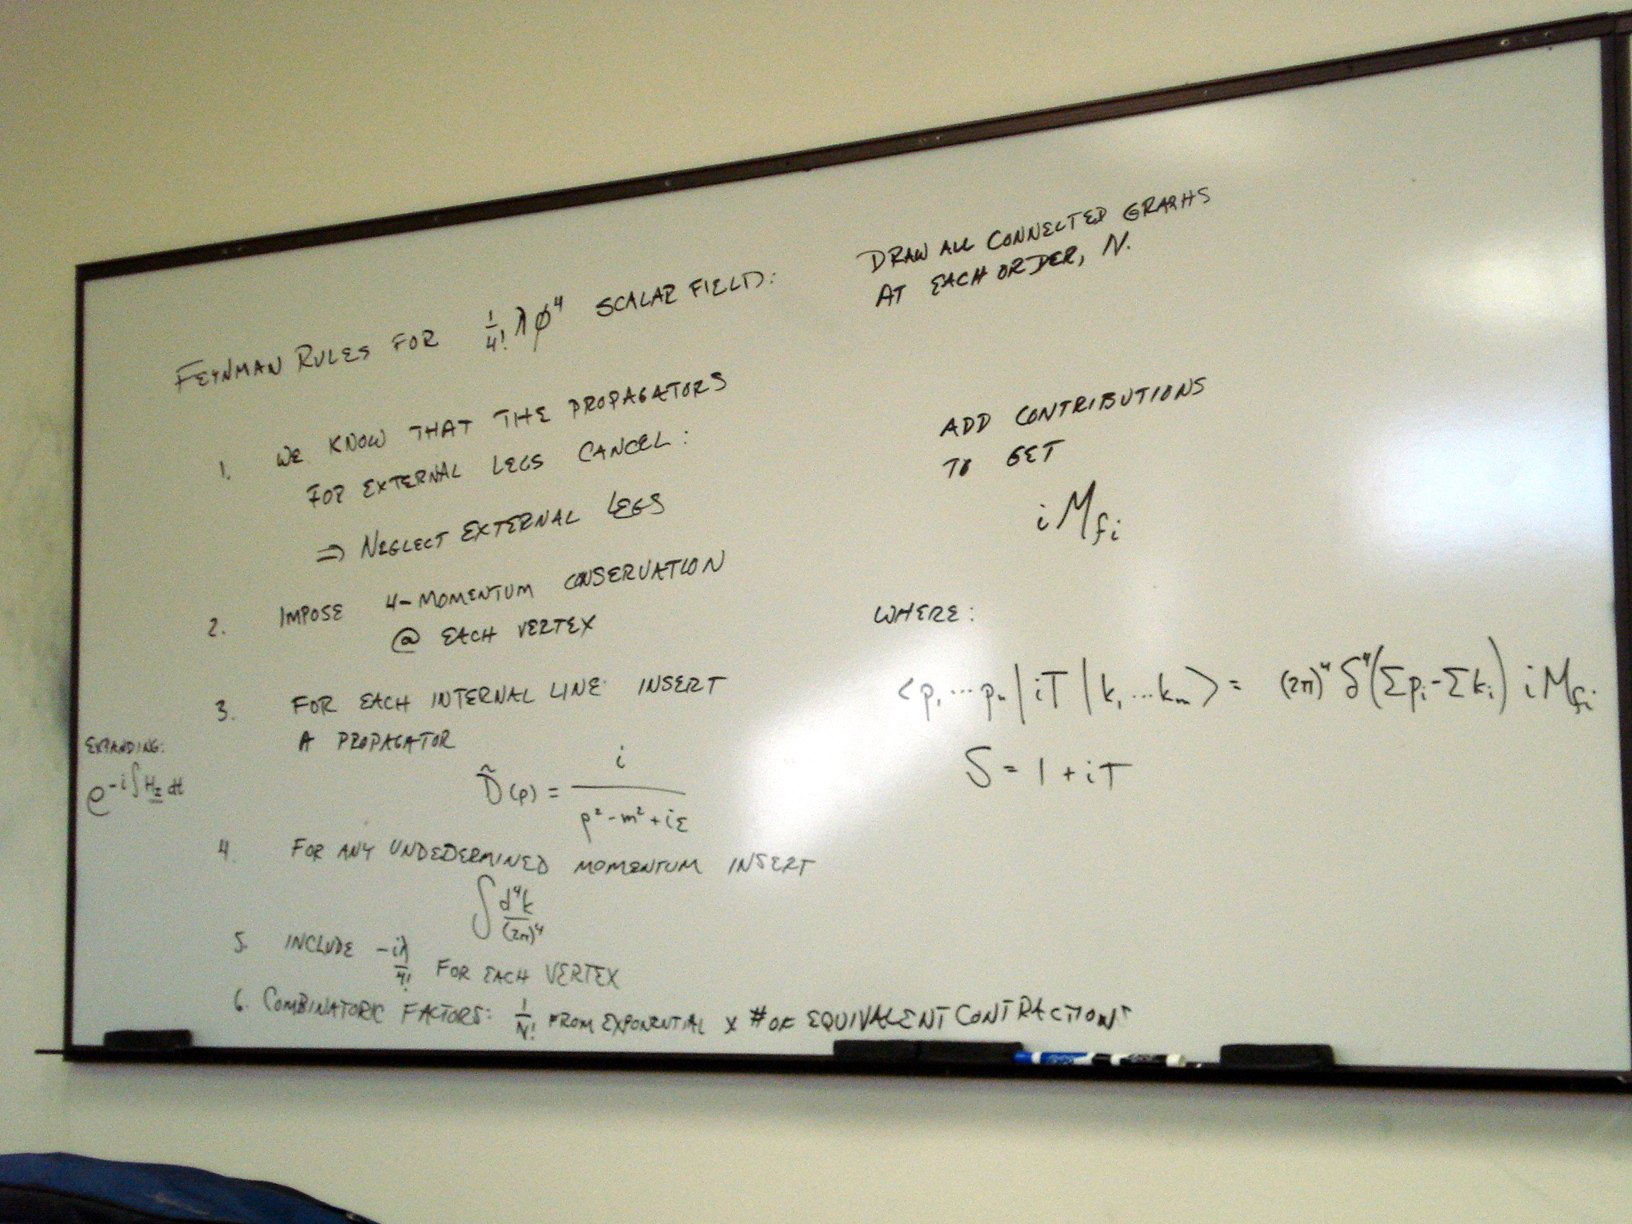 FEYNMAN RULES FOR 1/4! λφ⁴ SCALAR FIELD:
1. WE KNOW THAT THE PROPAGATORS
FOR EXTERNAL LEGS CANCEL:
⇒ NEGLECT EXTERNAL LEGS
2. IMPOSE 4-MOMENTUM CONSERVATION
@ EACH VERTEX
3. FOR EACH INTERNAL LINE INSERT
A PROPAGATOR
D̃(p) = i / (p² - m² + iε)
EXPANDING:
e^{-i∫H_I dt}
4. FOR ANY UNDEDERMINED MOMENTUM INSERT
∫ d⁴k/(2π)⁴
5. INCLUDE -iλ/4! FOR EACH VERTEX
6. COMBINATORIC FACTORS: 1/N! FROM EXPONENTIAL x # OF EQUIVALENT CONTRACTIONS
DRAW ALL CONNECTED GRAPHS
AT EACH ORDER, N.
ADD CONTRIBUTIONS
TO GET
iM_fi
WHERE:
<p₁...pₙ|iT|k₁...kₘ> = (2π)⁴ δ⁴(Σpᵢ-Σkᵢ) iM_fi
S = 1 + iT